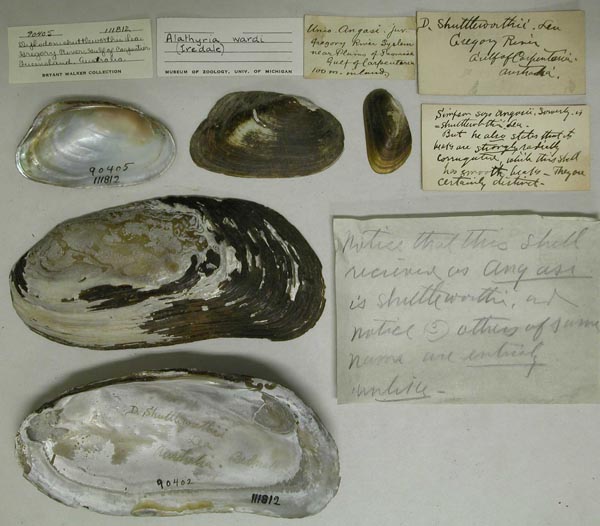 90405 111812
Diplodon shuttleworthii Lea
Gregory River, Gulf of Carpentaria
Queensland, Australia
BRYANT WALKER COLLECTION
Alathyria wardi
(Iredale)
MUSEUM OF ZOOLOGY, UNIV. OF MICHIGAN
Unio Angasi
Gregory River System
near Plains of
Gulf of Carpentaria
100 m. inland
D. Shuttleworthii, Lea
Gregory River
Gulf of Carpentaria
Australia.
Simpson says angasii, Sowerby, is
= shuttleworthii Lea.
But he also states that its
beaks are strongly radially
corrugated, while this shell
has smooth beaks - They are
certainly distinct -
90405
111812
Notice that this shell
recieved as Angasi
is shuttleworthi, and
notice 3 others of same
name are entirely
unlike -
D. Shuttleworthii
Lea
90402
111812